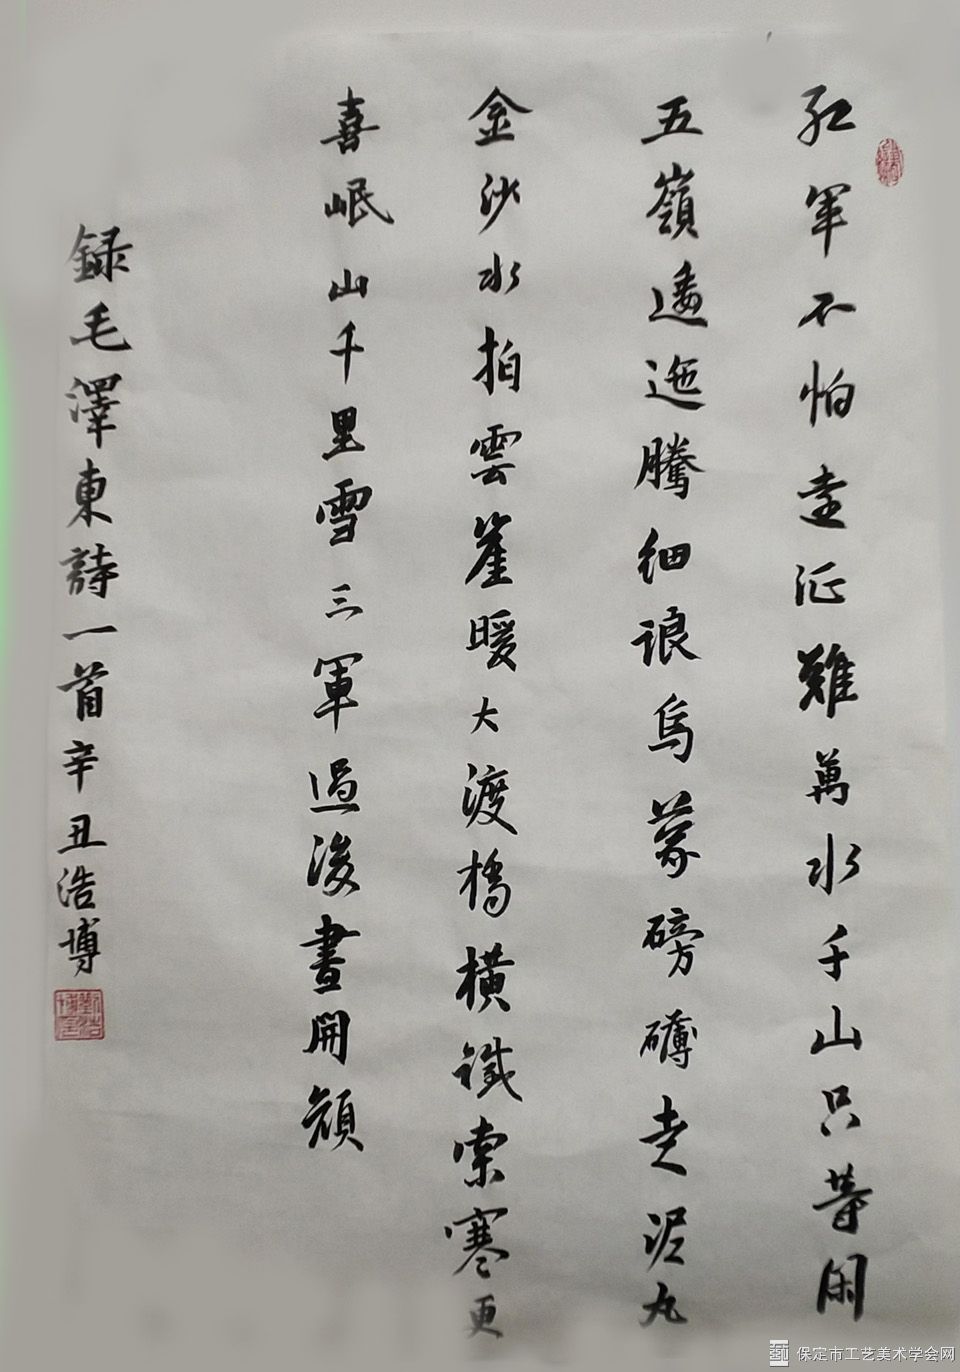 紅軍不怕遠征難萬水千山只等閑
五嶺逶迤騰細浪烏蒙磅礴走泥丸
金沙水拍雲崖暖大渡橋橫鐵索寒更
喜岷山千里雪三軍過後盡開顏
録毛澤東詩一首辛丑浩博
保定市工艺美术学会网